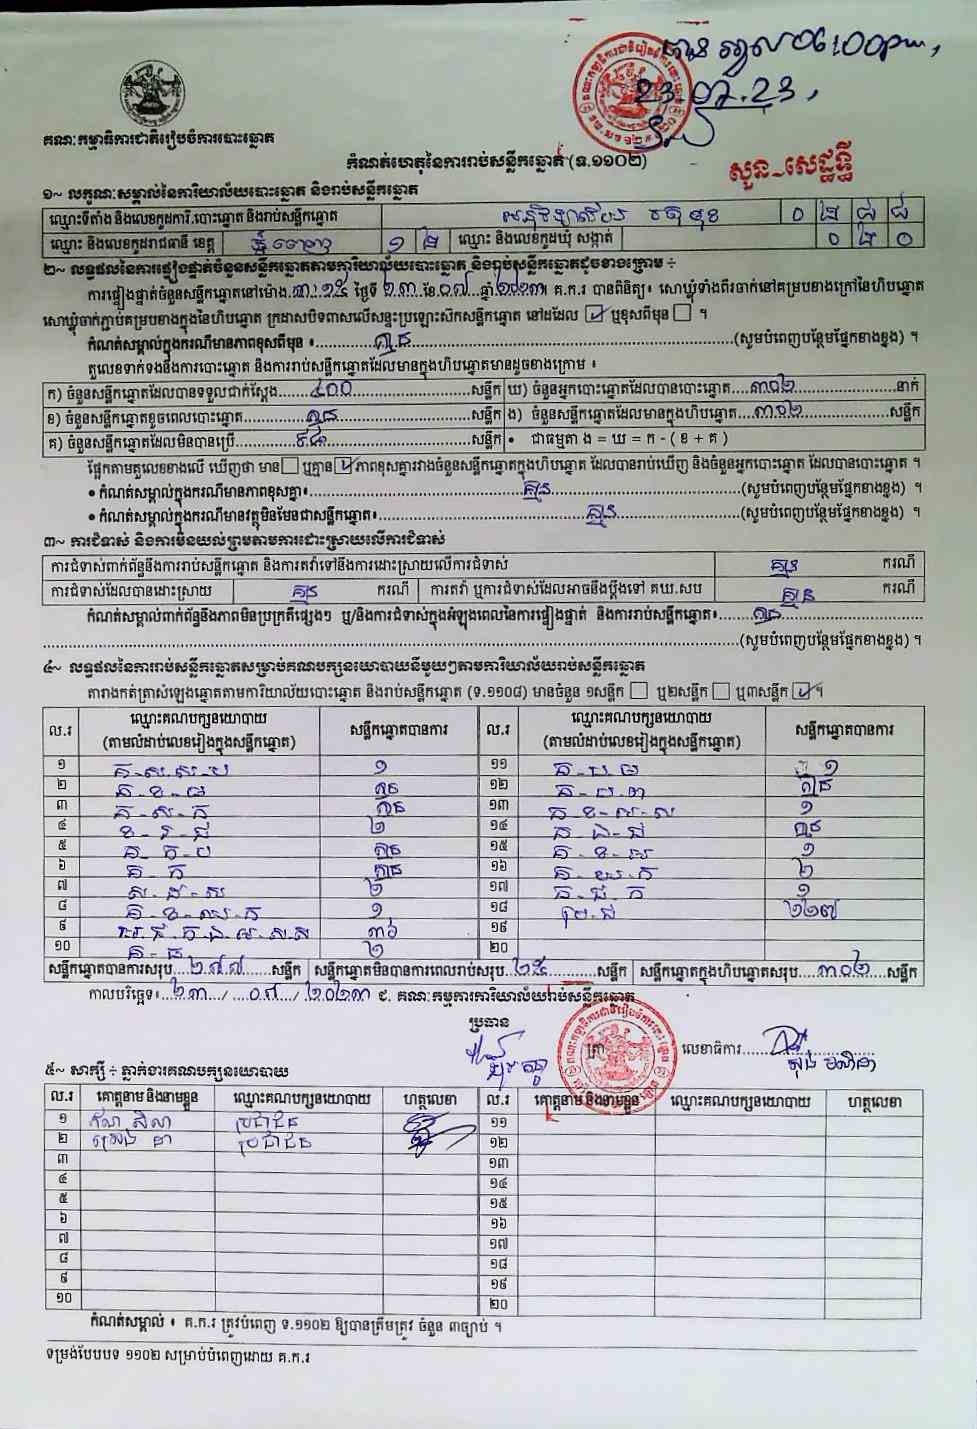 បានអួល 06:00pm,
23.07.23,
គណៈកម្មាធិការជាតិរៀបចំការបោះឆ្នោត
កំណត់ហេតុនៃការរាប់សន្លឹកឆ្នោត (ទ.១១០២)
សួន-សេដ្ឋន្ធី
១~ លក្ខណៈសម្គាល់នៃការិយាល័យបោះឆ្នោត និងរាប់សន្លឹកឆ្នោត
ឈ្មោះទីតាំង និងលេខកូដការិ.បោះឆ្នោត និងរាប់សន្លឹកឆ្នោត អនុវិទ្យាល័យ ចតុមុខ ០ ២ ៨ ៨
ឈ្មោះ និងលេខកូដរាជធានី ខេត្ត ភ្នំពេញ ១ ២ ឈ្មោះ និងលេខកូដឃុំ សង្កាត់ ០ ២ ០
២~ លទ្ធផលនៃការផ្ទៀងផ្ទាត់ចំនួនសន្លឹកឆ្នោតតាមការិយាល័យបោះឆ្នោត និងរាប់សន្លឹកឆ្នោតដូចខាងក្រោម ÷
ការផ្ទៀងផ្ទាត់ចំនួនសន្លឹកឆ្នោតនៅម៉ោង ៣:១៥ ថ្ងៃទី ២៣ ខែ ០៧ ឆ្នាំ ២០២៣ គ.ក.រ បានពិនិត្យ៖ សោឃ្លុំទាំងពីរចាក់នៅគម្របខាងក្រៅនៃហិបឆ្នោត
សោឃ្លុំចាក់ភ្ជាប់គម្របខាងក្នុងនៃហិបឆ្នោត ក្រដាសបិទពាសលើសន្ទះប្រឡោះសិកសន្លឹកឆ្នោត នៅដដែល ☑ ឬខុសពីមុន ☐ ។
កំណត់សម្គាល់ក្នុងករណីមានភាពខុសពីមុន ៖ គ្មាន (សូមបំពេញបន្ថែមផ្នែកខាងខ្នង) ។
តួលេខទាក់ទងនឹងការបោះឆ្នោត និងការរាប់សន្លឹកឆ្នោតដែលមានក្នុងហិបឆ្នោតមានដូចខាងក្រោម ៖
ក) ចំនួនសន្លឹកឆ្នោតដែលបានទទួលជាក់ស្តែង ៤០០ សន្លឹក ឃ) ចំនួនអ្នកបោះឆ្នោតដែលបានបោះឆ្នោត ៣០២ នាក់
ខ) ចំនួនសន្លឹកឆ្នោតខូចពេលបោះឆ្នោត គ្មាន សន្លឹក ង) ចំនួនសន្លឹកឆ្នោតដែលមានក្នុងហិបឆ្នោត ៣០២ សន្លឹក
គ) ចំនួនសន្លឹកឆ្នោតដែលមិនបានប្រើ ៩៨ សន្លឹក • ជាធម្មតា ង = ឃ = ក - ( ខ + គ )
ផ្អែកតាមតួលេខខាងលើ ឃើញថា មាន ☐ ឬគ្មាន ☑ ភាពខុសគ្នារវាងចំនួនសន្លឹកឆ្នោតក្នុងហិបឆ្នោត ដែលបានរាប់ឃើញ និងចំនួនអ្នកបោះឆ្នោត ដែលបានបោះឆ្នោត ។
• កំណត់សម្គាល់ក្នុងករណីមានភាពខុសគ្នា៖ គ្មាន (សូមបំពេញបន្ថែមផ្នែកខាងខ្នង) ។
• កំណត់សម្គាល់ក្នុងករណីមានវត្ថុមិនមែនជាសន្លឹកឆ្នោត៖ គ្មាន (សូមបំពេញបន្ថែមផ្នែកខាងខ្នង) ។
៣~ ការជំទាស់ និងការមិនយល់ព្រមតាមការដោះស្រាយលើការជំទាស់
ការជំទាស់ពាក់ព័ន្ធនឹងការរាប់សន្លឹកឆ្នោត និងការតវ៉ាទៅនឹងការដោះស្រាយលើការជំទាស់ គ្មាន ករណី
ការជំទាស់ដែលបានដោះស្រាយ គ្មាន ករណី ការតវ៉ា ឬការជំទាស់ដែលអាចនឹងប្តឹងទៅ គឃ.សប គ្មាន ករណី
កំណត់សម្គាល់ពាក់ព័ន្ធនឹងភាពមិនប្រក្រតីផ្សេងៗ ឬ/និងការជំទាស់ក្នុងអំឡុងពេលនៃការផ្ទៀងផ្ទាត់ និងការរាប់សន្លឹកឆ្នោត៖ គ្មាន
(សូមបំពេញបន្ថែមផ្នែកខាងខ្នង) ។
៤~ លទ្ធផលនៃការរាប់សន្លឹកឆ្នោតសម្រាប់គណបក្សនយោបាយនីមួយៗតាមការិយាល័យរាប់សន្លឹកឆ្នោត
តារាងកត់ត្រាសំឡេងឆ្នោតតាមការិយាល័យបោះឆ្នោត និងរាប់សន្លឹកឆ្នោត (ទ.១១០៨) មានចំនួន ១សន្លឹក ☐ ឬ២សន្លឹក ☐ ឬ៣សន្លឹក ☑ ។
ល.រ ឈ្មោះគណបក្សនយោបាយ (តាមលំដាប់លេខរៀងក្នុងសន្លឹកឆ្នោត) សន្លឹកឆ្នោតបានការ ល.រ ឈ្មោះគណបក្សនយោបាយ (តាមលំដាប់លេខរៀងក្នុងសន្លឹកឆ្នោត) សន្លឹកឆ្នោតបានការ
១ គ-ស.ស-ប ១ ១១ គ-ប-ធ ១
២ គ-ខ-ធ គ្មាន ១២ គ-ប-ព គ្មាន
៣ គ-ស-ក គ្មាន ១៣ គ-ខ-អ-ស ១
៤ ខ-រ-ជ ២ ១៤ គ-ឯ-ជ គ្មាន
៥ គ-ក-ប គ្មាន ១៥ គ-ខ-អ ១
៦ គ-ក គ្មាន ១៦ គ-យ-ក ២
៧ ស-ដ-ស ២ ១៧ គ-ជ-ក ១
៨ គ-ខ-ឈ-ក ១ ១៨ ប្រ-ជ ២២៧
៩ ហ.ជ.ក.ឯ.អ.ស.ស ៣៦ ១៩
១០ គ-ធ ២ ២០
សន្លឹកឆ្នោតបានការសរុប ២៧៧ សន្លឹក សន្លឹកឆ្នោតមិនបានការពេលរាប់សរុប ២៥ សន្លឹក សន្លឹកឆ្នោតក្នុងហិបឆ្នោតសរុប ៣០២ សន្លឹក
កាលបរិច្ឆេទ៖ ២៣ / ០៧ / ២០២៣ ជ. គណៈកម្មការការិយាល័យរាប់សន្លឹកឆ្នោត
ប្រធាន ត្រា លេខាធិការ
៥~ សាក្សី ÷ ភ្នាក់ងារគណបក្សនយោបាយ
ល.រ គោត្តនាម និងនាមខ្លួន ឈ្មោះគណបក្សនយោបាយ ហត្ថលេខា ល.រ គោត្តនាម និងនាមខ្លួន ឈ្មោះគណបក្សនយោបាយ ហត្ថលេខា
១ ប្រជាជន ១១
២ ប្រជាជន ១២
៣ ១៣
៤ ១៤
៥ ១៥
៦ ១៦
៧ ១៧
៨ ១៨
៩ ១៩
១០ ២០
កំណត់សម្គាល់ ៖ គ.ក.រ ត្រូវបំពេញ ទ.១១០២ ឱ្យបានត្រឹមត្រូវ ចំនួន ៣ច្បាប់ ។
ទម្រង់បែបបទ ១១០២ សម្រាប់បំពេញដោយ គ.ក.រ